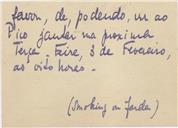 favor, de, podendo, vir ao
Pico jantar na proxima
Terça-feira, 3 de Fevereiro,
às oito horas.
(Smoking ou farda)